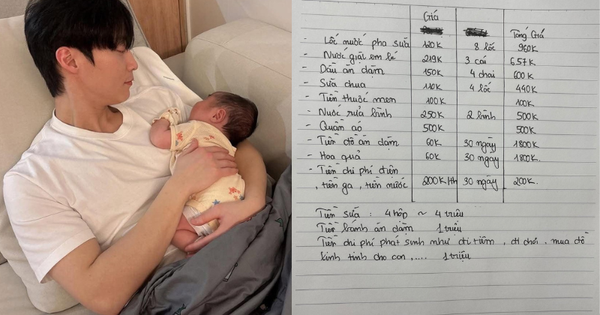 Giá Tổng Giá
- Lốc nước pha sữa 120K 8 lốc 960K
- Nước giặt em bé 219K 3 cái 657K
- Dầu ăn dặm 150K 4 chai 600K
- Sữa chua 110K 4 lốc 440K
- Tiền thuốc men 100K 100K
- Nước rửa bình 250K 2 bình 500K
- Quần áo 500K 500K
- Tiền đồ ăn dặm 60K 30 ngày 1800K
- Hoa quả 60K 30 ngày 1800K.
- Tiền chi phí điện
, tiền ga, tiền nước 200K/th 30 ngày 200K.
Tiền sữa : 4 hộp ~ 4 triệu
Tiền bánh ăn dặm 1 triệu
Tiền chi phí phát sinh như đi tiêm, đi chơi, mua đồ
linh tinh cho con,.... 1 triệu